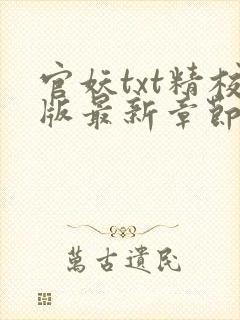 官妖txt精校
版最新章節
萬古遺民